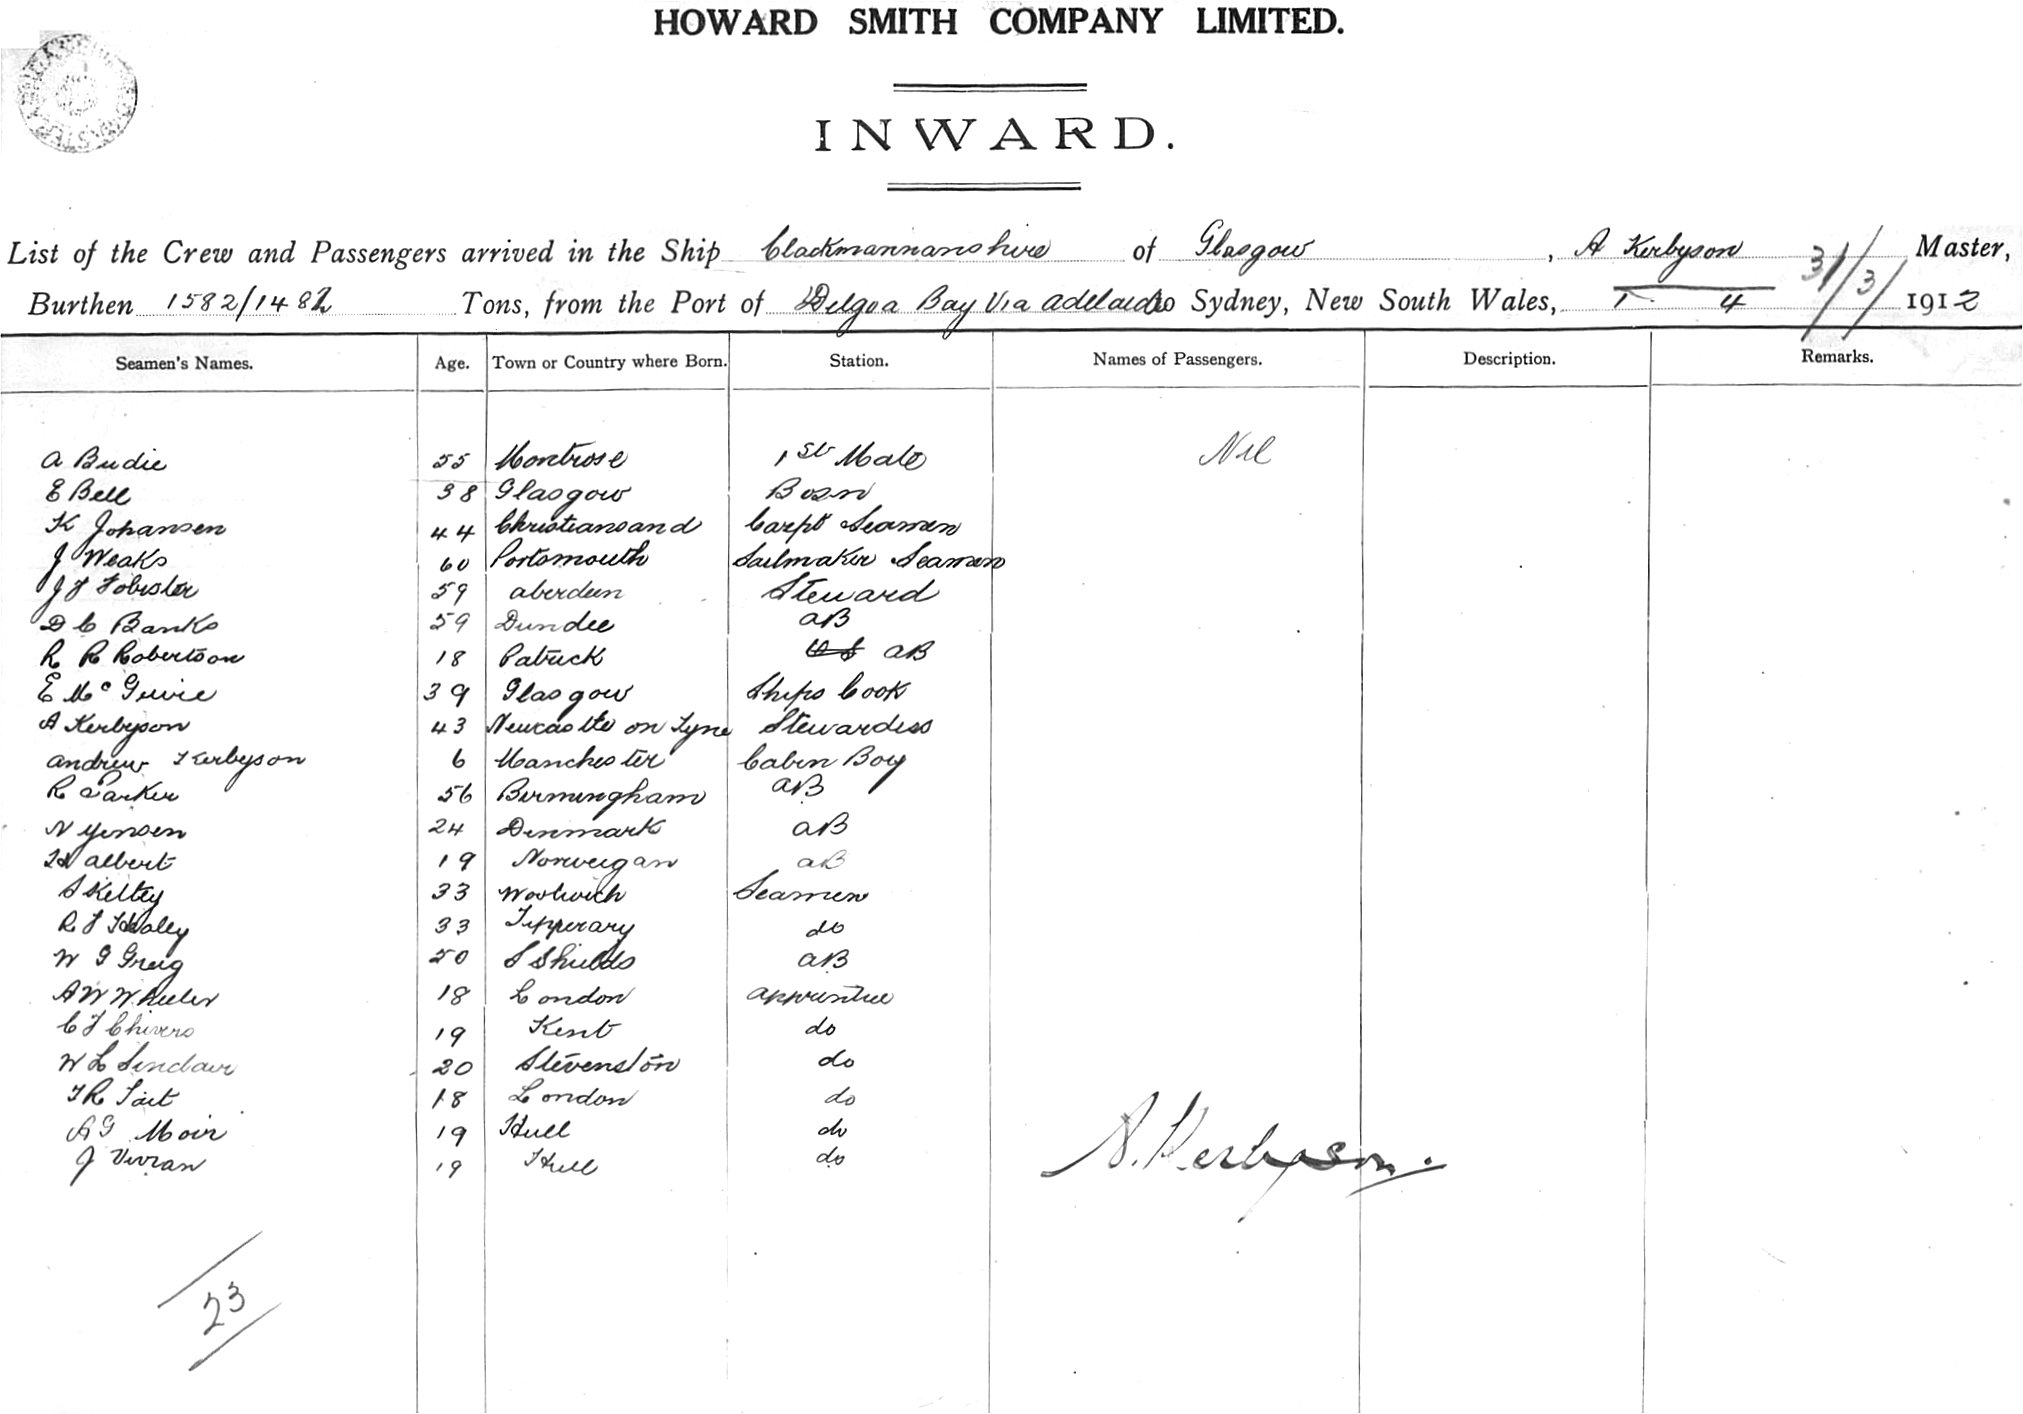 HOWARD SMITH COMPANY LIMITED.
INWARD.
List of the Crew and Passengers arrived in the Ship Clackmannanshire of Glasgow, A Kerbyson Master,
31/3/
Burthen 1582/1482 Tons, from the Port of Delgoa Bay Via Adelaide to Sydney, New South Wales, 1 4 1912
Seamen's Names. Age. Town or Country where Born. Station. Names of Passengers. Description. Remarks.
A Budie 55 Montrose 1st Mate Nil
E Bell 38 Glasgow Bosn
K Johansen 44 Christiansand Carpt Seamen
J Weaks 60 Portsmouth Sailmaker Seamen
J F Fobister 59 Aberdeen Steward
D C Banks 59 Dundee AB
R R Robertson 18 Patrick AB
E McGuire 39 Glasgow Ships Cook
A Kerbyson 43 Newcastle on Tyne Stewardess
Andrew Kerbyson 6 Manchester Cabin Boy
R Parker 56 Birmingham AB
N Yensen 24 Denmark AB
H Albert 19 Norweigan AB
S Keltey 33 Woolwich Seamen
R F Haley 33 Tipperary do
W G Greig 50 S Shields AB
A W Wheeler 18 London Apprentice
C F Chivers 19 Kent do
W L Sinclair 20 Stevenston do
T R Tait 18 London do
A G Moir 19 Hull do
J Vivian 19 Hull do
A. Kerbyson.
23